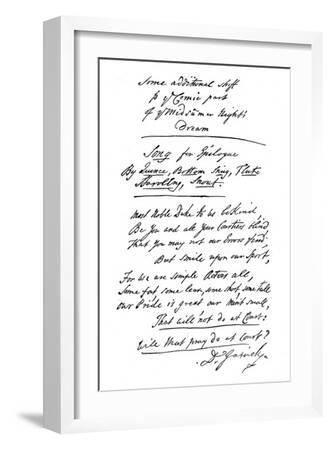 Some additional stuff
to yͤ Comic part
of yͤ Midsum̄er Night's
Dream
Song for Epilogue
By Quince, Bottom Snug, Flute
Starveling, Snout.
Most Noble Duke to us be kind
Be You and all Your Courtiers blind,
That you may not our Errors find,
But smile upon our Sport,
For we are simple Actors all,
Some fat some lean, some short some tall
our Pride is great our merit small,
That will not do at Court.
will that pray do at Court?
D. Garrick